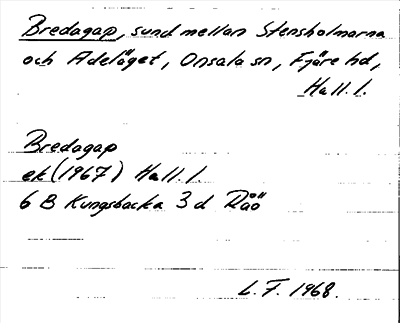 Bredagap, sund mellan Stensholmarna
och Adelåget, Onsala sn, Fjäre hd,
Hall. l.
Bredagap
ek (1967) Hall. l.
6 B Kungsbacka 3 d Råö
L. F. 1968.